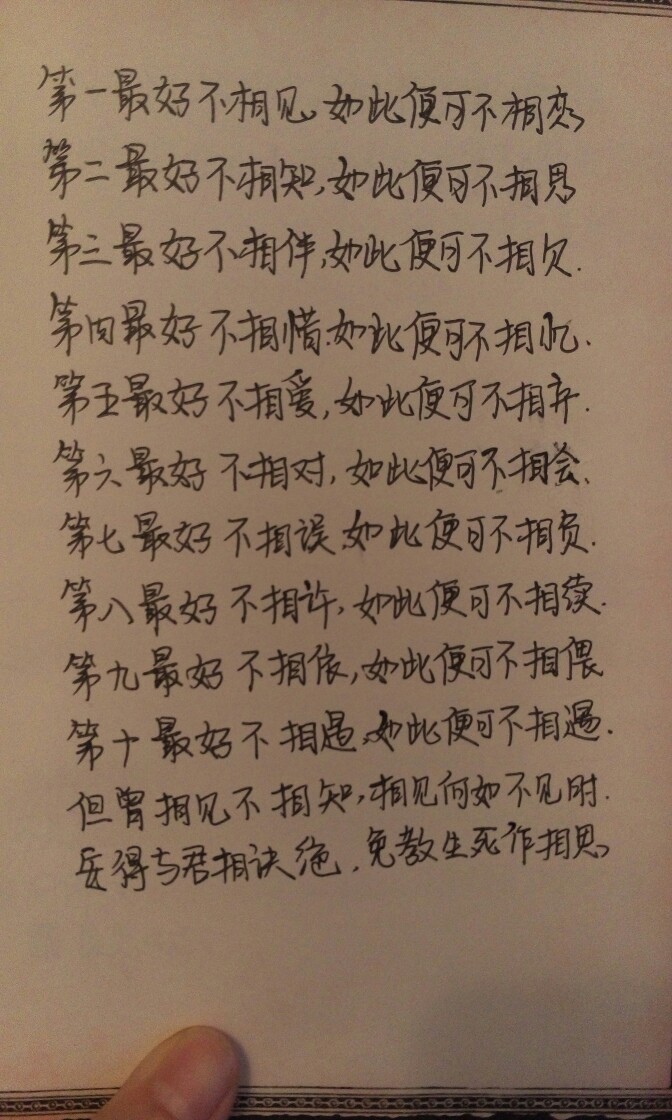 第一最好不相见,如此便可不相恋,
第二最好不相知,如此便可不相思
第三最好不相伴,如此便可不相欠.
第四最好不相惜.如此便可不相忆.
第五最好不相爱,如此便可不相弃.
第六最好不相对,如此便可不相会.
第七最好不相误,如此便可不相负.
第八最好不相许,如此便可不相续.
第九最好不相依,如此便可不相偎
第十最好不相遇,如此便可不相遇.
但曾相见不相知,相见何如不见时.
安得与君相诀绝,免教生死作相思,